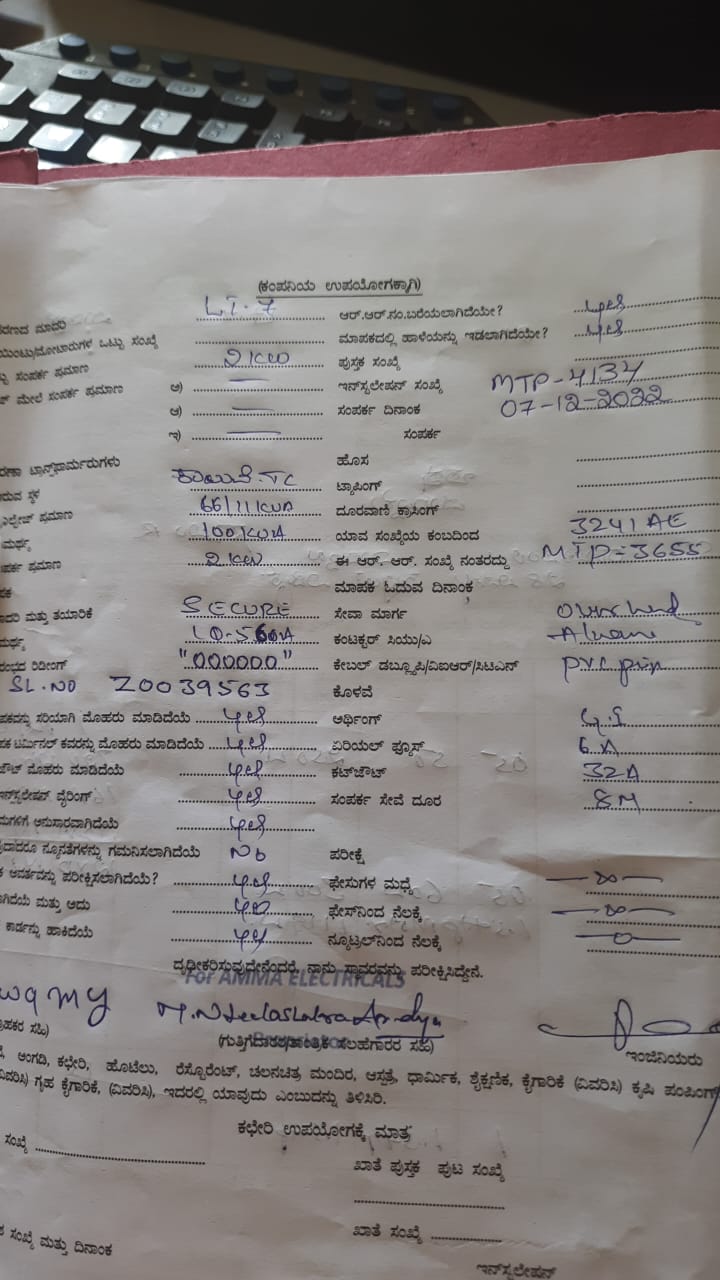 (ಕಂಪನಿಯ ಉಪಯೋಗಕ್ಕಾಗಿ)
ರಣದ ಮಾದರಿ LT-7 ಆರ್.ಆರ್.ನಂ.ಬರೆಯಲಾಗಿದೆಯೇ? yes
ಯಿಂಟು/ಮೋಟಾರುಗಳ ಒಟ್ಟು ಸಂಖ್ಯೆ ಮಾಪಕದಲ್ಲಿ ಹಾಳೆಯನ್ನು ಇಡಲಾಗಿದೆಯೇ? yes
ಸಂಪರ್ಕ ಪ್ರಮಾಣ 2 KW ಪುಸ್ತಕ ಸಂಖ್ಯೆ
ಮೇಲೆ ಸಂಪರ್ಕ ಪ್ರಮಾಣ ಅ) — ಇನ್‌ಸ್ಟಲೇಷನ್ ಸಂಖ್ಯೆ MTP-4134
ಆ) — ಸಂಪರ್ಕ ದಿನಾಂಕ 07-12-2022
ಇ) — ಸಂಪರ್ಕ
ಟ್ರಾನ್ಸ್‌ಫಾರ್ಮರುಗಳು ಹೊಸ
ರುವ ಸ್ಥಳ TC ಟ್ಯಾಪಿಂಗ್
ಪ್ರಮಾಣ 66/11 KVA ದೂರವಾಣಿ ಕ್ರಾಸಿಂಗ್
100 KVA ಯಾವ ಸಂಖ್ಯೆಯ ಕಂಬದಿಂದ 3241 AE
ಪರ್ಕ ಪ್ರಮಾಣ 2 KW ಈ ಆರ್. ಆರ್. ಸಂಖ್ಯೆ ನಂತರದ್ದು MTP-3655
ಮಾಪಕ ಓದುವ ದಿನಾಂಕ
ಮತ್ತು ತಯಾರಿಕೆ SECURE ಸೇವಾ ಮಾರ್ಗ
ಕಂಡಕ್ಟರ್ ಸಿಯು/ಎ
ರಂಭದ ರಿಡೀಂಗ್ "000000" ಕೇಬಲ್ ಡಬ್ಲ್ಯೂಪಿ/ವಿಐಆರ್/ಸಿಟಿಎಸ್ PVC
SL.NO Z0039563 ಕೊಳವೆ
ಪಕವನ್ನು ಸರಿಯಾಗಿ ಮೊಹರು ಮಾಡಿದೆಯೆ yes ಅರ್ಥಿಂಗ್ G.I
ಪಕ ಟರ್ಮಿನಲ್ ಕವರನ್ನು ಮೊಹರು ಮಾಡಿದೆಯೆ yes ಏರಿಯಲ್ ಫ್ಯೂಸ್ 6 A
ಜೌಟ್ ಮೊಹರು ಮಾಡಿದೆಯೆ yes ಕಟ್‌ಜೌಟ್ 32A
ಇನ್‌ಸ್ಟಲೇಷನ್ ವೈರಿಂಗ್ yes ಸಂಪರ್ಕ ಸೇವೆ ದೂರ 8M
ಮಗಳಿಗೆ ಅನುಸಾರವಾಗಿದೆಯೆ yes
ವುದಾದರೂ ನ್ಯೂನತೆಗಳನ್ನು ಗಮನಿಸಲಾಗಿದೆಯೆ No ಪರೀಕ್ಷೆ
ಆವರ್ತವನ್ನು ಪರೀಕ್ಷಿಸಲಾಗಿದೆಯೆ? yes ಫೇಸುಗಳ ಮಧ್ಯೆ — ∞ —
ಾಗಿದೆಯೆ ಮತ್ತು ಅದು yes ಫೇಸ್‌ನಿಂದ ನೆಲಕ್ಕೆ — ∞ —
ಕಾರ್ಡನ್ನು ಹಾಕಿದೆಯೆ yes ನ್ಯೂಟ್ರಲ್‌ನಿಂದ ನೆಲಕ್ಕೆ — 0 —
ದೃಢೀಕರಿಸುವುದೇನೆಂದರೆ, ನಾನು ಸ್ಥಾವರವನ್ನು ಪರೀಕ್ಷಿಸಿದ್ದೇನೆ.
For AMMA ELECTRICALS
ಹಕರ ಸಹಿ) (ಗುತ್ತಿಗೆದಾರರ/ತಾಂತ್ರಿಕ ಸಲಹೆಗಾರರ ಸಹಿ) ಇಂಜಿನಿಯರು
ಅಂಗಡಿ, ಕಛೇರಿ, ಹೊಟೆಲು, ರೆಸ್ಟೊರೆಂಟ್, ಚಲನಚಿತ್ರ ಮಂದಿರ, ಆಸ್ಪತ್ರೆ, ಧಾರ್ಮಿಕ, ಶೈಕ್ಷಣಿಕ, ಕೈಗಾರಿಕೆ (ವಿವರಿಸಿ) ಕೃಷಿ ಪಂಪಿಂಗ್
ವಿವರಿಸಿ) ಗೃಹ ಕೈಗಾರಿಕೆ, (ವಿವರಿಸಿ), ಇದರಲ್ಲಿ ಯಾವುದು ಎಂಬುದನ್ನು ತಿಳಿಸಿರಿ.
ಕಛೇರಿ ಉಪಯೋಗಕ್ಕೆ ಮಾತ್ರ
ಸಂಖ್ಯೆ ಖಾತೆ ಪುಸ್ತಕ ಪುಟ ಸಂಖ್ಯೆ
ಖಾತೆ ಸಂಖ್ಯೆ
ಸಂಖ್ಯೆ ಮತ್ತು ದಿನಾಂಕ
ಇನ್‌ಸ್ಟಲೇಷನ್